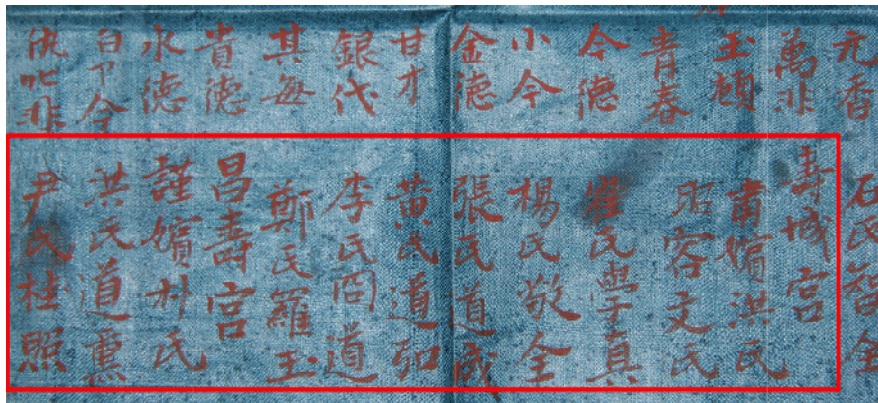 元香
萬非
玉頓
青春
今德
小今
金德
甘才
銀代
其每
貴德
永德
今
仇叱非
石氏智全
壽城宮
肅嬪洪氏
昭容文氏
崔氏學真
楊氏敬全
張氏道成
黃氏道弘
李氏冏道
鄭氏羅玉
昌壽宮
謹嬪朴氏
洪氏道熏
尹氏桂照